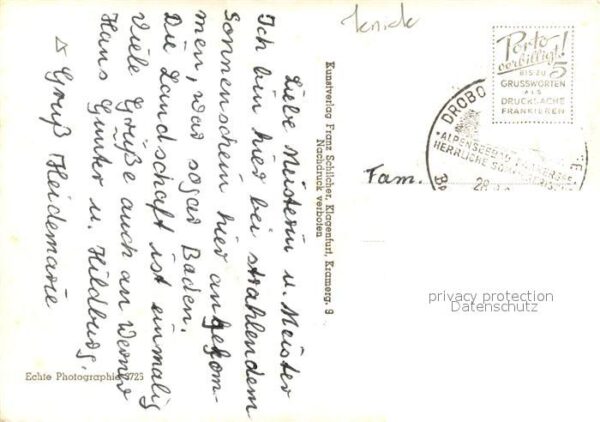 Liebe Meisterin u. Meister
Ich bin hier bei strahlendem
Sonnenschein hier angekom-
men, war sogar Baden.
Die Landschaft ist einmalig
Viele Grüße auch an Werner
Hans Gunter u. Hildburg,
Gruß Heidemarie
Kunstverlag Franz Schilcher, Klagenfurt, Kramerg. 8
Nachdruck verboten
Echte Photographie 3725
Porto
verbilligt!
BIS ZU 5
GRUSSWORTEN
ALS
DRUCKSACHE
FRANKIEREN
DROBO
ALPENSEEBAD
HERRLICHE
28
Fam.
privacy protection
Datenschutz